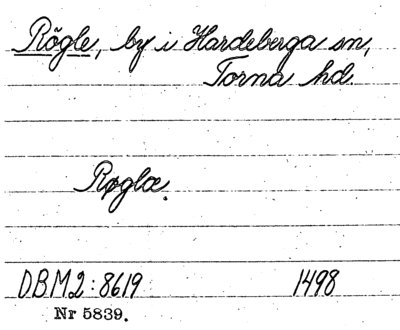 Rögle, by i Hardeberga sn,
Torna hd.
Røglæ.
DBM2:8619 1498
Nr 5839.